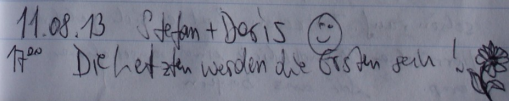 11.08.13 Stefan + Doris
17⁰⁰ Die Letzten werden die Ersten sein!